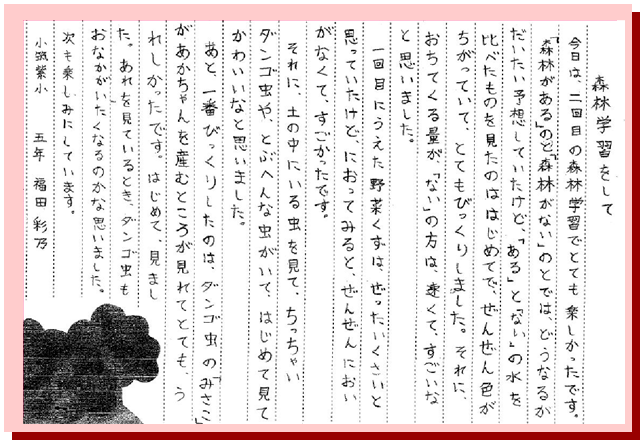 森林学習をして
今日は、二回目の森林学習でとても楽しかったです。
「森林がある」のと「森林がない」のとでは、どうなるか
だいたい予想していたけど、「ある」と「ない」の水を
比べたものを見たのははじめてで、ぜんぜん色が
ちがっていて、とてもびっくりしました。それに、
おちてくる量が、「ない」の方は、速くて、すごいな
と思いました。
一回目にうえた野菜くずは、ぜったいくさいと
思っていたけど、においってみると、ぜんぜんにおい
がなくて、すごかったです。
それに、土の中にいる虫を見て、ちっちゃい
ダンゴ虫や、とぶへんな虫がいて、はじめて見て
かわいいなと思いました。
あと、一番びっくりしたのは、ダンゴ虫の「みさこ」
があかちゃんを産むところが見れてとても、う
れしかったです。はじめて、見まし
た。あれを見ているとき、ダンゴ虫も
おなかがいたくなるのかな思いました。
次も楽しみにしています。
小筑紫小 五年 福田 彩乃